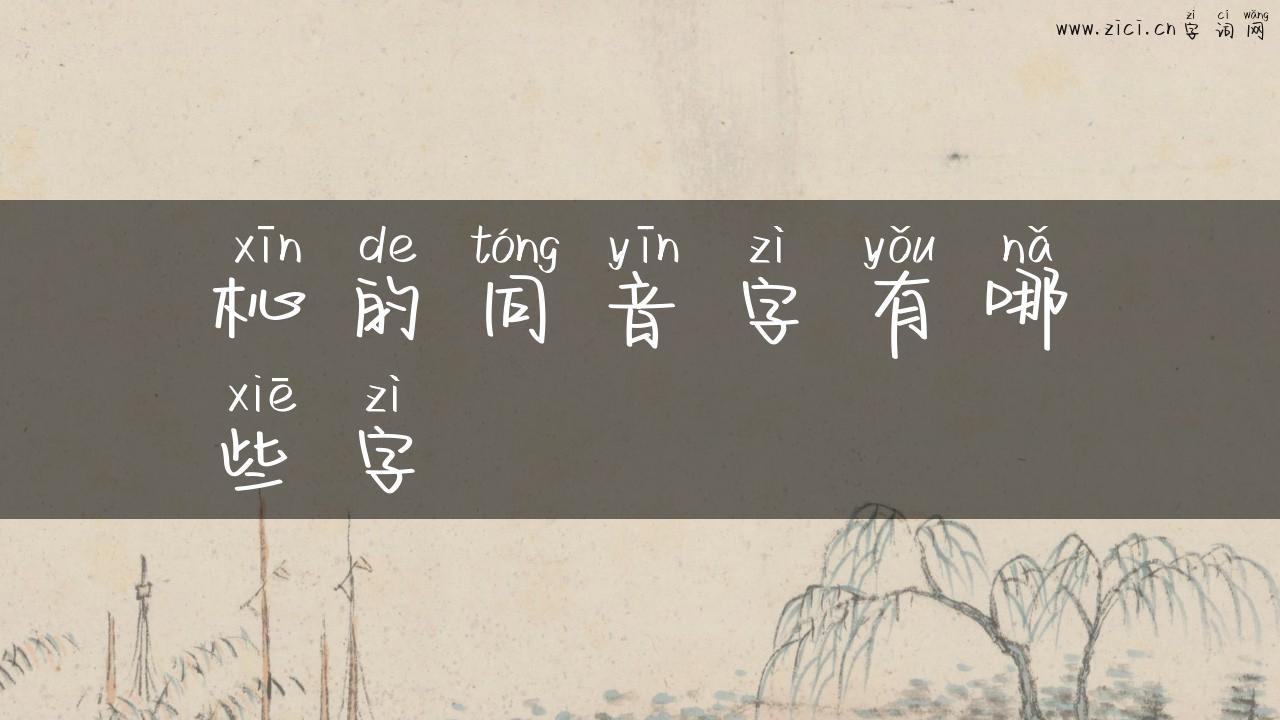 zì cí wǎng
www.zici.cn 字词网
xīn de tóng yīn zì yǒu nǎ
杺的同音字有哪
xiē zì
些字